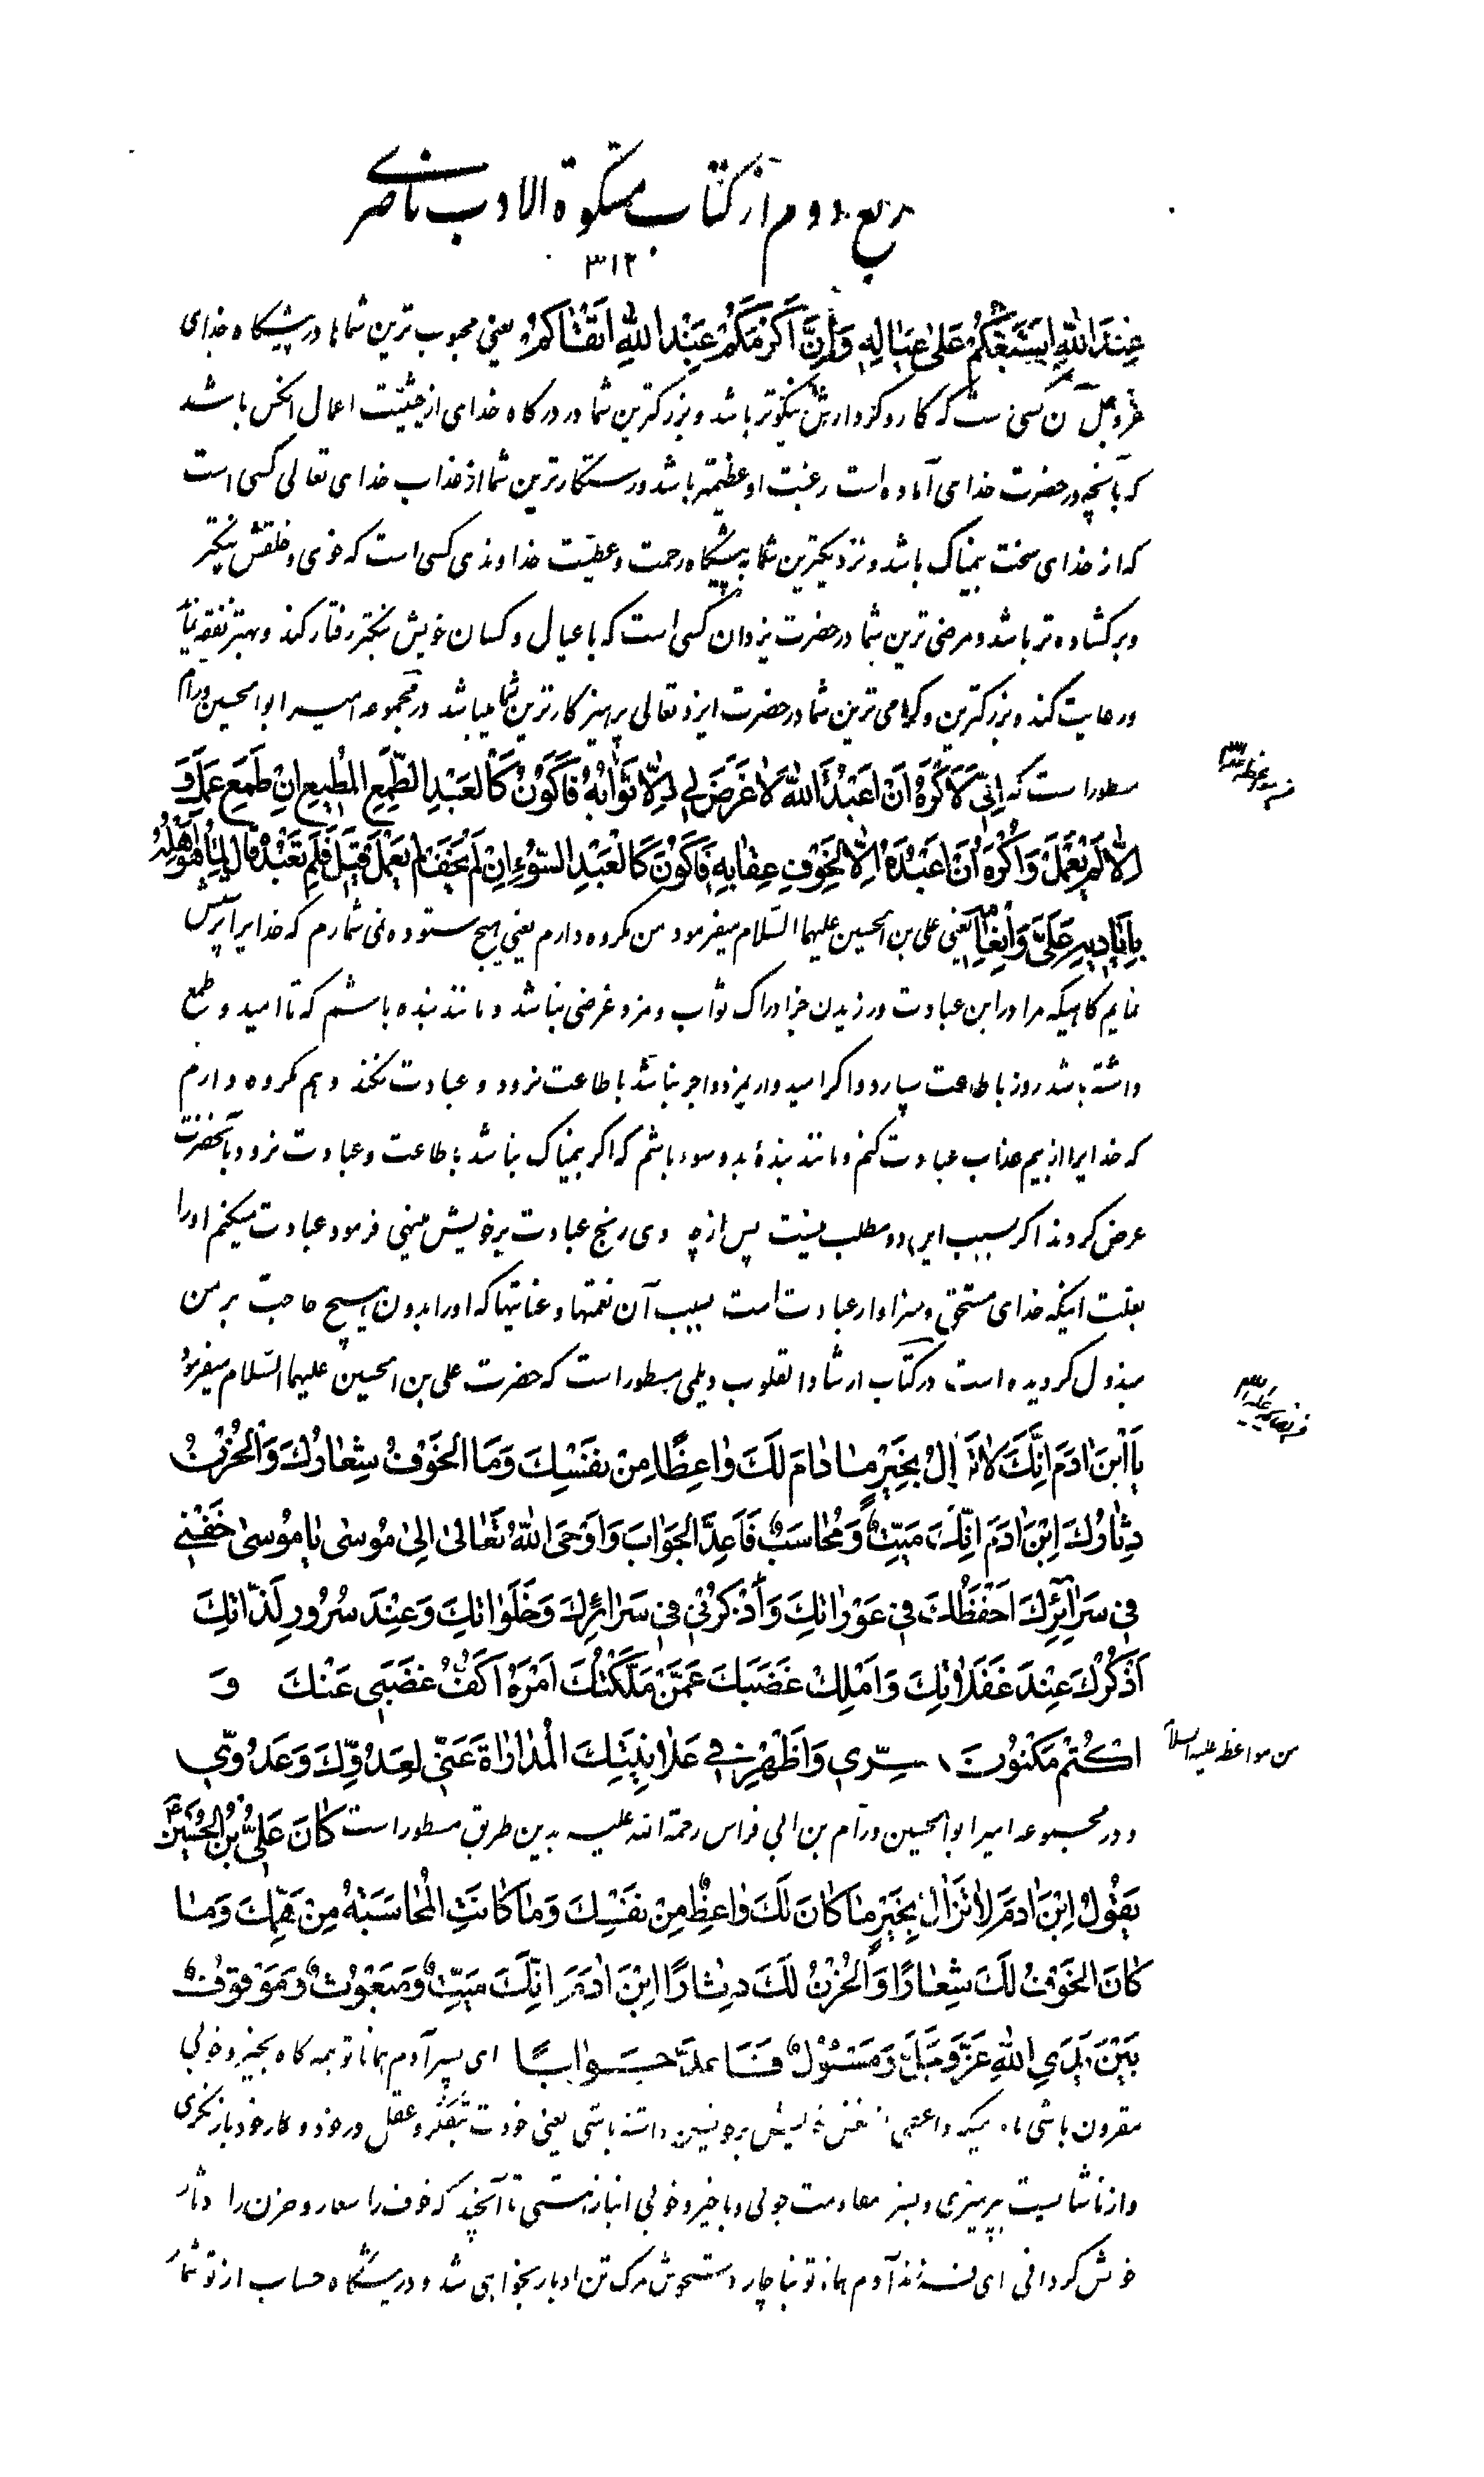 ربع دوم از کتاب مشکوة الادب ناصری
۳۱۲
عِنْدَ اللّٰهِ اَسْبَغُكُمْ عَلىٰ عِيٰالِهِ وَاِنَّ اَكْرَمَكُمْ عِنْدَ اللّٰهِ اَتْقٰاكُمْ یعنی محبوب ترین شماها در پیشگاه خدای
عزوجل آن کسی است که کار و کردارش نیکوتر باشد و بزرگترین شما در درگاه خدای از حیثیت اعمال انکس باشد
که بآنچه در حضرت خدای آماده است رغبت او عظیمتر باشد و رستکارترین شما از عذاب خدای تعالی کسی است
که از خدای سخت بیمناک باشد و نزدیکترین شما به پیشگاه رحمت و عطیّت خداوندی کسی است که خوی و خلقش نیکتر
و برکشاده تر باشد و مرضی ترین شما در حضرت یزدان کسی است که با عیال و کسان خویش نیکتر رفتار کند و بهتر نفقه
و رعایت کند و بزرگترین و گرامی ترین شما در حضرت ایزد تعالی پرهیزکارترین شما میباشد در مجموعه امیر ابوالحسین ورام
مسطور است که اِنّي لَاَكْرَهُ اَنْ اَعْبُدَ اللّٰهَ لاٰ غَرَضَ لي اِلاّٰ ثَوٰابُهُ فَاَكُوْنُ كَالْعَبْدِ الطَّمِعِ الْمُطيعِ اِنْ طَمِعَ عَمِلَ وَ
اِلاّٰ لَمْ يَعْمَلْ وَاَكْرَهُ اَنْ اَعْبُدَهُ اِلاّٰ لِخَوْفِ عِقٰابِهِ فَاَكُوْنَ كَالْعَبْدِ السُّوْءِ اِنْ لَمْ يَخَفْ لَمْ يَعْمَلْ قيلَ فَلِمَ تَعْبُدُهُ قٰالَ لِمٰا هُوَ اَهْلُهُ
بِاَيٰاديهِ عَلَيَّ وَاِنْعٰامِهِ یعنی علی بن الحسین علیهما السّلام میفرمود من مکروه دارم یعنی هیچ ستوده نمی شمارم که خدایرا پرستش
نمایم گاهیکه مرا در این عبادت ورزیدن جز ادراک ثواب و مزد غرضی نباشد و مانند بنده باشم که تا امید و طمع
داشته باشد روز باطاعت سپارد و اگر امیدوار بمزد و اجر نباشد باطاعت نرود و عبادت نکند و هم مکروه دارم
که خدایرا از بیم عذاب عبادت کنم و مانند بندهٔ بد و سوء باشم که اگر بیمناک نباشد باطاعت و عبادت نرود بآنحضرت
عرض کردند اگر بسبب این دو مطلب نیست پس از چه روی رنج عبادت بر خویش مینهی فرمود عبادت میکنم او را
بعلت اینکه خدای مستحق و سزاوار عبادت است بسبب آن نعمتها و عنایتها که او را بدون هیچ حاجت بر من
مبذول گردیده است در کتاب ارشاد القلوب دیلمی مسطور است که حضرت علی بن الحسین علیهما السّلام میفرمود
يَا ابْنَ اٰدَمَ اِنَّكَ لاٰ تَزٰالُ بِخَيْرٍ مٰا دٰامَ لَكَ وٰاعِظًا مِنْ نَفْسِكَ وَمَا الْخَوْفُ شِعٰارُكَ وَالْحُزْنُ
دِثٰارُكَ اِبْنَ اٰدَمَ اِنَّكَ مَيِّتٌ وَمُحٰاسَبٌ فَاَعِدَّ الْجَوٰابَ وَاَوْحَى اللّٰهُ تَعٰالىٰ اِلىٰ مُوسىٰ يٰا مُوسىٰ خَفْني
في سَرٰائِرِكَ اَحْفَظْكَ في عَوْرٰاتِكَ وَاذْكُرْني في سَرٰائِرِكَ وَخَلَوٰاتِكَ وَعِنْدَ سُرُورِ لَذّٰاتِكَ
اَذْكُرْكَ عِنْدَ غَفَلاٰتِكَ وَامْلِكْ غَضَبَكَ عَمَّنْ مَلَّكْتُكَ اَمْرَهُ اَكُفُّ غَضَبي عَنْكَ وَ
اكْتُمْ مَكْنُونَ سِرّي وَاَظْهِرْ في عَلاٰنِيَتِكَ الْمُدٰارٰاةَ عَنّي لِعَدُوِّكَ وَعَدُوّي
و در مجموعه امیر ابوالحسین ورّام بن ابی فراس رحمة الله علیه بدین طریق مسطور است كٰانَ عَلِيُّ بْنُ الْحُسَيْنِ
يَقُولُ اِبْنَ اٰدَمَ لاٰ تَزٰالُ بِخَيْرٍ مٰا كٰانَ لَكَ وٰاعِظٌ مِنْ نَفْسِكَ وَمٰا كٰانَتِ الْمُحٰاسَبَةُ مِنْ هَمِّكَ وَمٰا
كٰانَ الْخَوْفُ لَكَ شِعٰارًا وَالْحُزْنُ لَكَ دِثٰارًا اِبْنَ اٰدَمَ اِنَّكَ مَيِّتٌ وَمَبْعُوثٌ وَمَوْقُوفٌ
بَيْنَ يَدَيِ اللّٰهِ عَزَّ وَجَلَّ وَمَسْئُولٌ فَاَعِدَّ جَوٰابًا ای پسر آدم همانا تو همه گاه بخیر و خوبی
مقرون باشی مادامیکه واعظی از نفس خویش بر خویشتن داشته باشی یعنی خودت بتفکر و عقل در خود و کار خود باز نگری
و از ناشایست بپرهیزی و معاودت جوئی و با خیر و خوبی انباز هستی تا آنچند که خوف را شعار و حزن را دثار
خویش گردانی ای فرزند آدم همانا تو بناچار دستخوش مرگ تن ادبار بخواهی شد و در پیشگاه حساب از تو شمار
من مواعظه علیه السلام